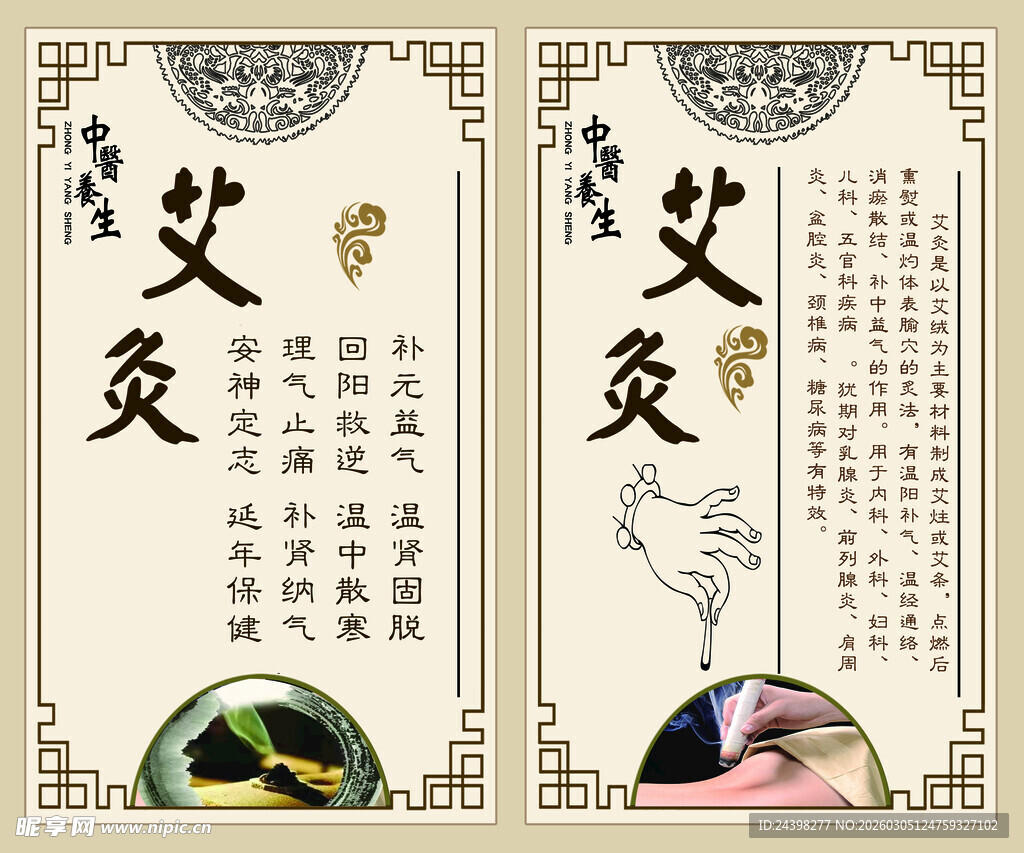 中醫養生
ZHONG YI YANG SHENG
艾灸
补元益气 温肾固脱
回阳救逆 温中散寒
理气止痛 补肾纳气
安神定志 延年保健
中醫養生
ZHONG YI YANG SHENG
艾灸
艾灸是以艾绒为主要材料制成艾炷或艾条，点燃后
熏熨或温灼体表腧穴的炙法，有温阳补气、温经通络、
消瘀散结、补中益气的作用。用于内科、外科、妇科、
儿科、五官科疾病 。犹期对乳腺炎、前列腺炎、肩周
炎、盆腔炎、颈椎病、糖尿病等有特效。
昵享网 www.nipic.cn
ID:24398277 NO:20260305124759327102